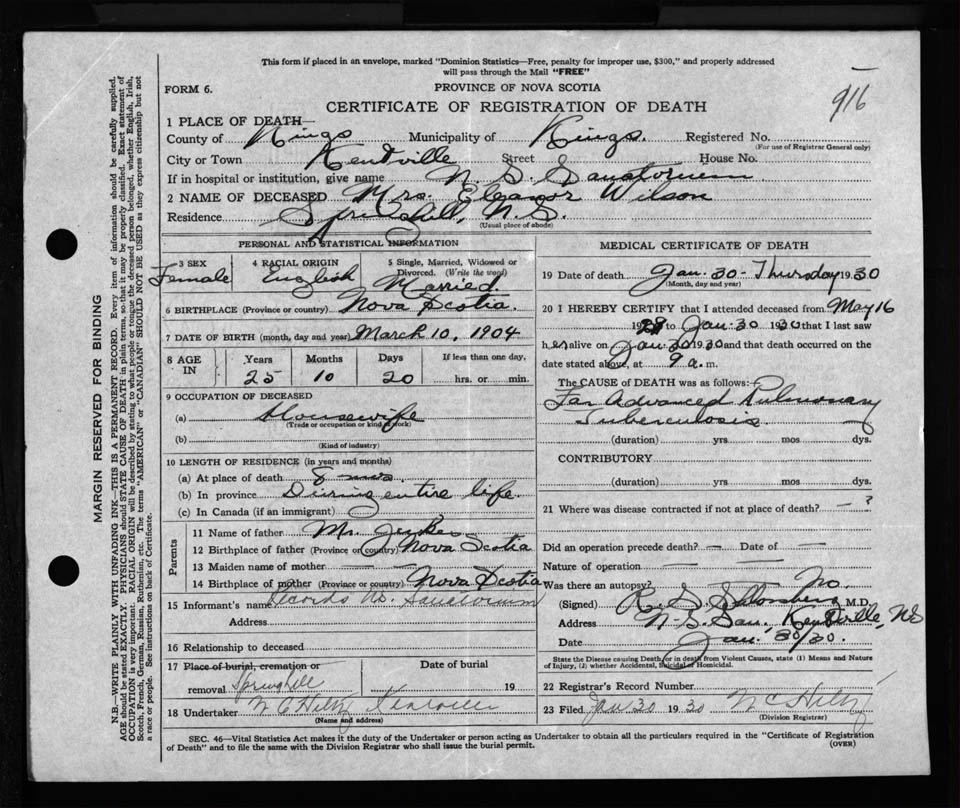 This form if placed in an envelope, marked "Dominion Statistics—Free, penalty for improper use, $300," and properly addressed
will pass through the Mail "FREE"
916
FORM 6.
PROVINCE OF NOVA SCOTIA
CERTIFICATE OF REGISTRATION OF DEATH
1 PLACE OF DEATH—
County of Kings Municipality of Kings. Registered No.
(For use of Registrar General only)
City or Town Kentville Street House No.
If in hospital or institution, give name N. S. Sanatorium
2 NAME OF DECEASED Mrs. Eleanor Wilson
Residence Springhill, N.S.
(Usual place of abode)
PERSONAL AND STATISTICAL INFORMATION
3 SEX Female
4 RACIAL ORIGIN English
5 Single, Married, Widowed or Divorced. (Write the word) Married.
6 BIRTHPLACE (Province or country) Nova Scotia.
7 DATE OF BIRTH (month, day and year) March 10, 1904
8 AGE IN Years Months Days If less than one day,
25 10 20 hrs. or min.
9 OCCUPATION OF DECEASED
(a) Housewife
(Trade or occupation or kind of work)
(b)
(Kind of industry)
10 LENGTH OF RESIDENCE (in years and months)
(a) At place of death 8 mos.
(b) In province During entire life.
(c) In Canada (if an immigrant)
Parents
11 Name of father Mr.
12 Birthplace of father (Province or country) Nova Scotia
13 Maiden name of mother — —
14 Birthplace of mother (Province or country) Nova Scotia
15 Informant's name Records Sanatorium
Address
16 Relationship to deceased
17 Place of burial, cremation or Date of burial
removal Springhill 19
18 Undertaker N C Hiltz Kentville
(Name and address)
MEDICAL CERTIFICATE OF DEATH
19 Date of death Jan. 30 - Thursday 1930
(Month, day and year)
20 I HEREBY CERTIFY that I attended deceased from May 16
19 to Jan. 30 1930 that I last saw
her alive on Jan 30 1930 and that death occurred on the
date stated above, at 9 a. m.
The CAUSE OF DEATH was as follows:—
Far Advanced Pulmonary
Tuberculosis
(duration) yrs mos dys.
CONTRIBUTORY
(duration) yrs mos dys.
21 Where was disease contracted if not at place of death? — ?
Did an operation precede death? — Date of —
Nature of operation — —
Was there an autopsy? No.
(Signed) R. S. M.D.
Address N-S-San. Kentville, NS
Date Jan. 30/30.
State the Disease causing Death, or in death from Violent Causes, state (1) Means and Nature
of Injury, (2) whether Accidental, Suicidal or Homicidal.
22 Registrar's Record Number
23 Filed Jan 30 1930 N C Hiltz
(Division Registrar)
SEC. 46—Vital Statistics Act makes it the duty of the Undertaker or person acting as Undertaker to obtain all the particulars required in the "Certificate of Registration
of Death" and to file the same with the Division Registrar who shall issue the burial permit.
(OVER)
MARGIN RESERVED FOR BINDING
N.B.—WRITE PLAINLY WITH UNFADING INK—THIS IS A PERMANENT RECORD. Every item of information should be carefully supplied.
AGE should be stated EXACTLY. PHYSICIANS should STATE CAUSE OF DEATH in plain terms, so that it may be properly classified. Exact statement of
OCCUPATION is very important. RACIAL ORIGIN will be described by stating to what people or tongue the deceased person belonged, whether English, Irish,
Scotch, French, German, Russian, Ruthenian, etc. The terms "AMERICAN" or "CANADIAN" SHOULD NOT BE USED as they express citizenship but not
a race or people. See instructions on back of Certificate.